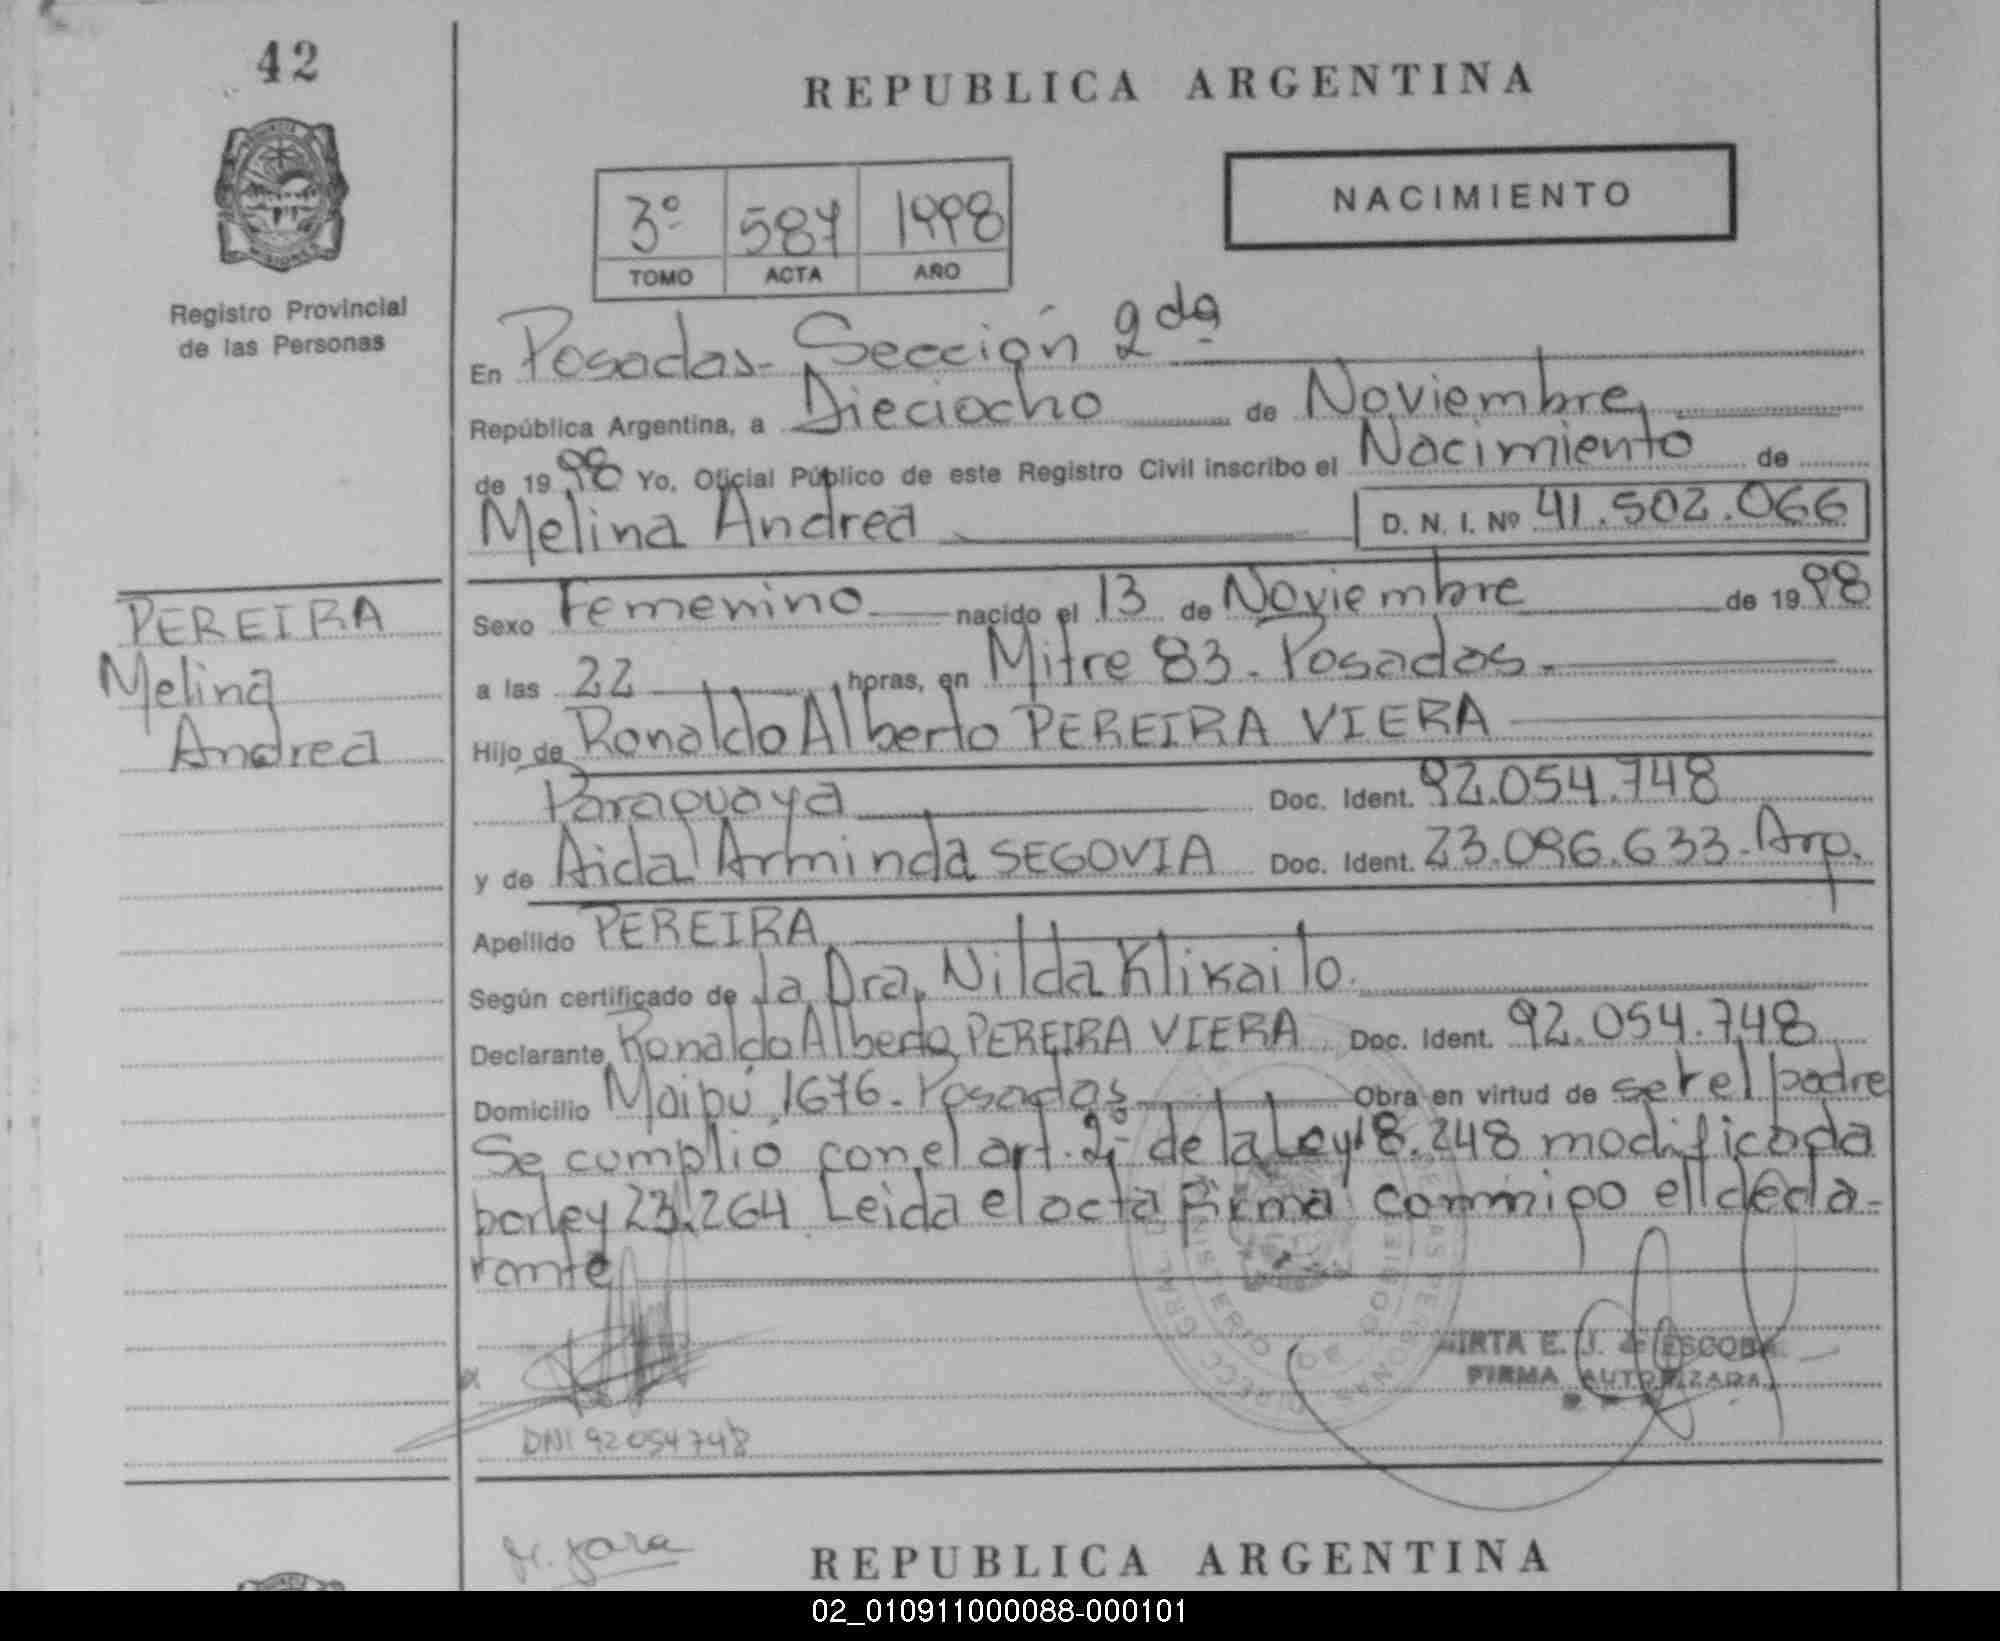 42
REPUBLICA ARGENTINA
NACIMIENTO
3º 587 1998
TOMO ACTA AÑO
Registro Provincial
de las Personas
En Posadas - Sección 2da
República Argentina, a Dieciocho de Noviembre
de 1998 Yo, Oficial Público de este Registro Civil inscribo el Nacimiento de
Melina Andrea D. N. I. Nº 41.502.066
PEREIRA
Melina
Andrea
Sexo Femenino nacido el 13 de Noviembre de 1998
a las 22 horas, en Mitre 83 - Posadas -
Hijo de Ronaldo Alberto PEREIRA VIERA
Paraguaya Doc. Ident. 92.054.748
y de Aida Arminda SEGOVIA Doc. Ident. 23.096.633 - Arg.
Apellido PEREIRA
Según certificado de la Dra. Nilda Klikailo
Declarante Ronaldo Alberto PEREIRA VIERA Doc. Ident. 92.054.748
Domicilio Maipú 1676 - Posadas Obra en virtud de ser el padre
Se cumplió con el art. 2º de la Ley 18.248 modificada
por ley 23.264 Leida el acta firma conmigo el decla-
rante
MIRTA E. J. de ESCOBAR
FIRMA AUTORIZADA
DNI 92054748
REPUBLICA ARGENTINA
02_010911000088-000101